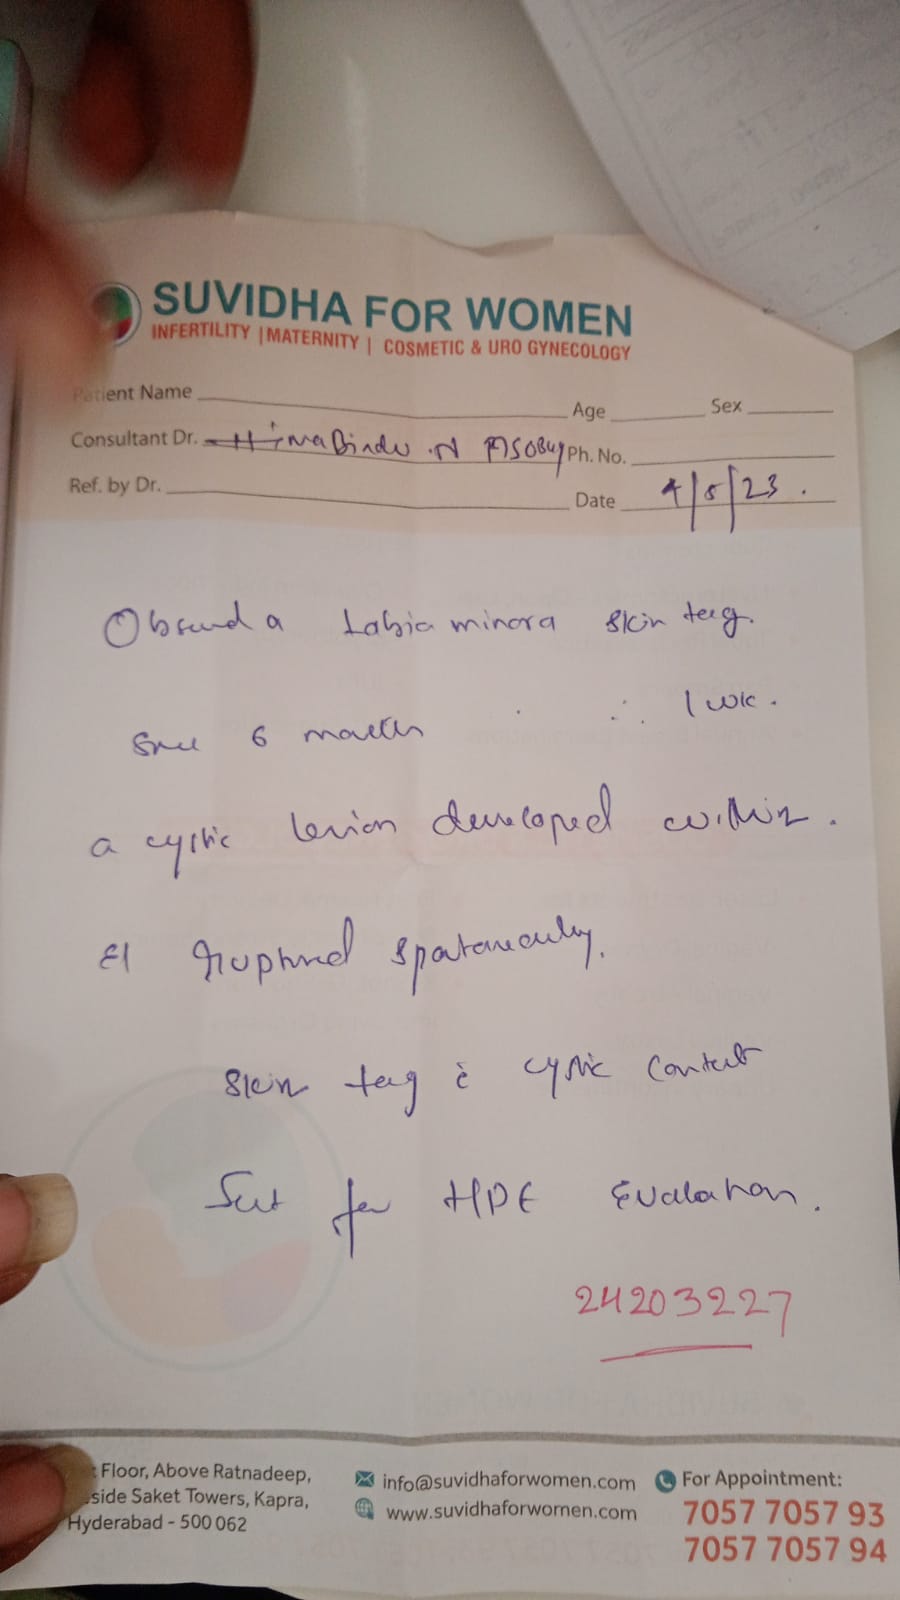 SUVIDHA FOR WOMEN
INFERTILITY | MATERNITY | COSMETIC & URO GYNECOLOGY
Patient Name Age Sex
Consultant Dr. HimaBindu .N Ph. No.
Ref. by Dr. Date 4/5/23.
Observed a Labia minora skin tag.
Since 6 months ∴ 1 wk.
a cystic lesion developed within.
ruptured spontaneously.
Skin tag c̄ cystic content
Sent for HPE Evaluation.
24203227
Floor, Above Ratnadeep,
side Saket Towers, Kapra,
Hyderabad - 500 062
info@suvidhaforwomen.com
www.suvidhaforwomen.com
For Appointment:
7057 7057 93
7057 7057 94